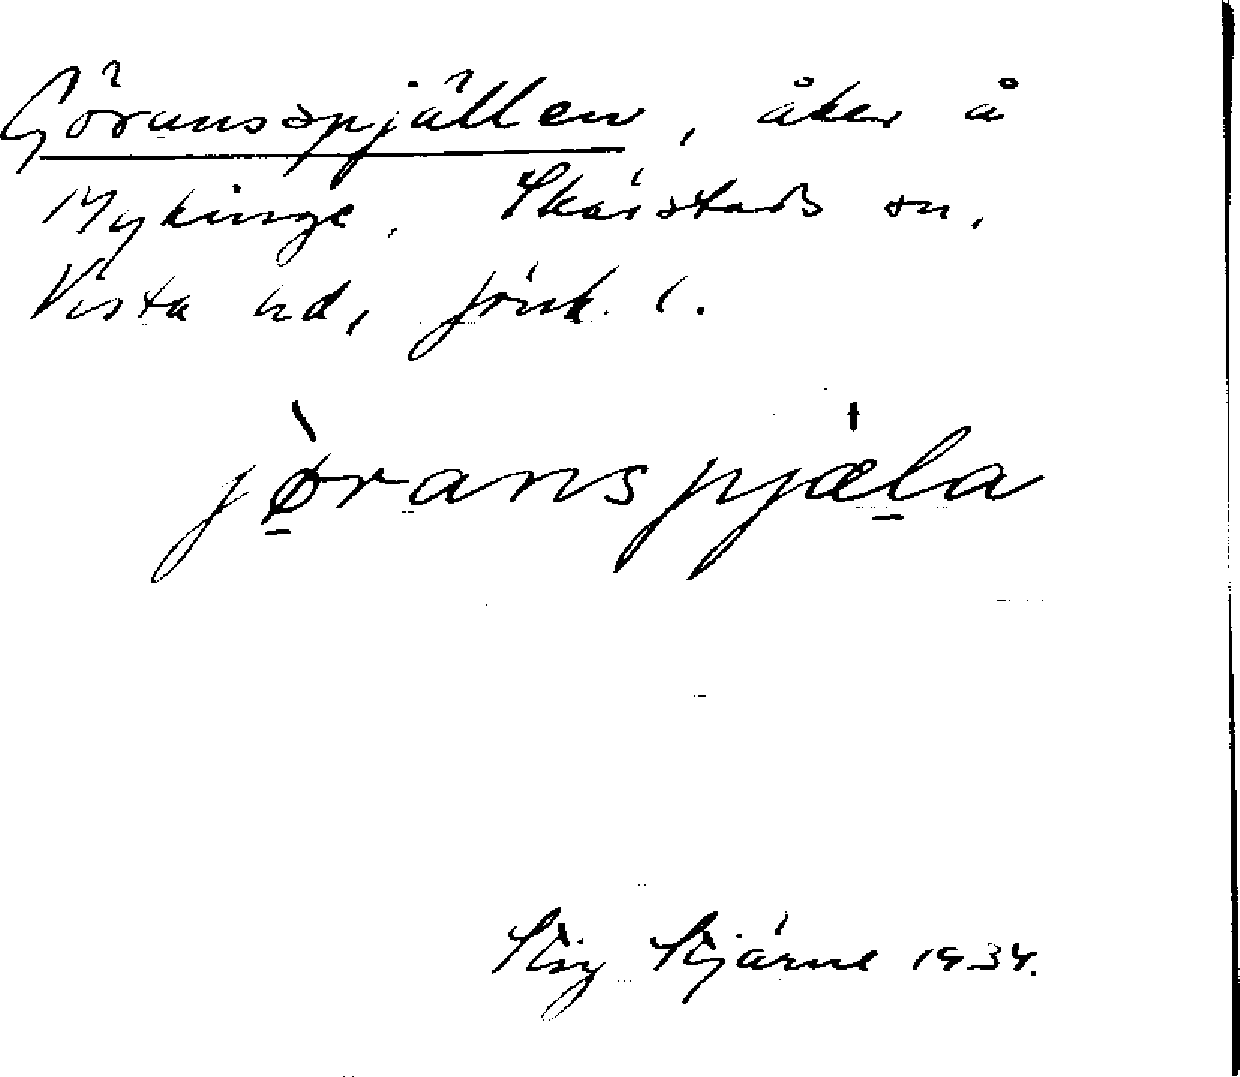 Göransspjällen, åker å
Mykinge, Skärstads sn,
Vista hd, Jönk. l.
jø̠̀ranspjæl̠a
Stig Stjärne 1934.